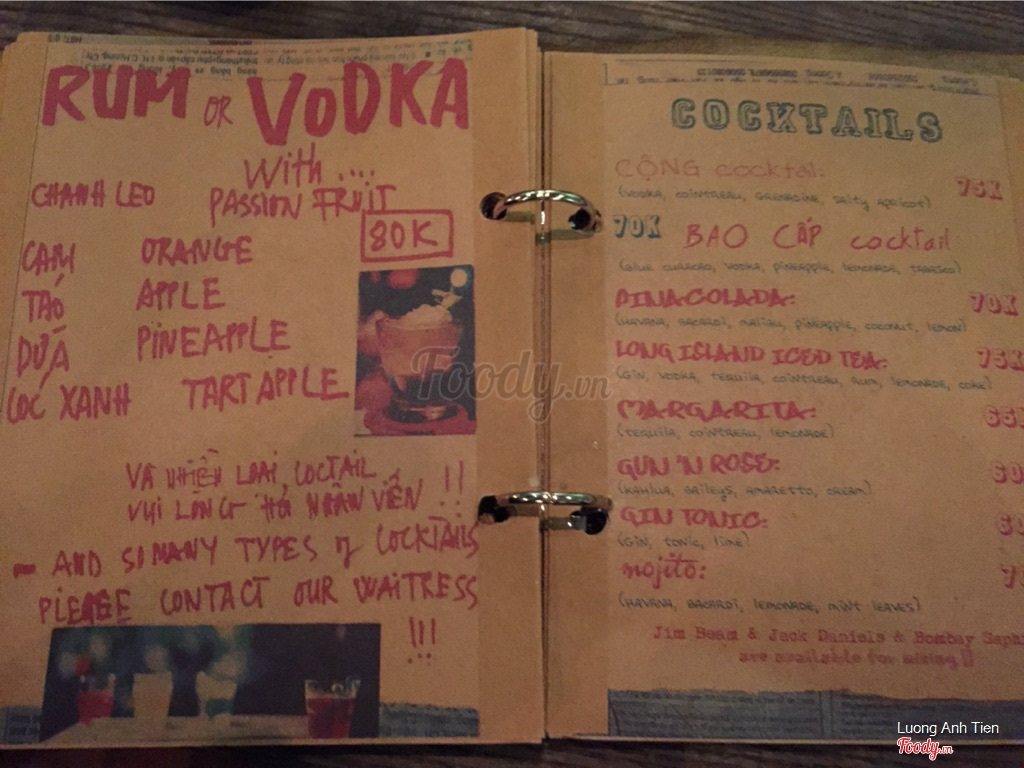 RUM OR VODKA
With ....
CHANH LEO PASSION FRUIT
80K
CAM ORANGE
TÁO APPLE
DỨA PINEAPPLE
CÓC XANH TART APPLE
VÀ NHIỀU LOẠI COCTAIL
VUI LÒNG HỎI NHÂN VIÊN !!
- AND SO MANY TYPES of COCKTAILS
PLEASE CONTACT OUR WAITRESS
!!!
COCKTAILS
CỘNG cocktail: 75K
(VODKA, COINTREAU, GRENADINE, SALTY APRICOT)
70K BAO CẤP cocktail
(BLUE CURACAO, VODKA, PINEAPPLE, LEMONADE, TABASCO)
PINACOLADA: 70K
(HAVANA, BACARDI, MALIBU, PINEAPPLE, COCONUT, LEMON)
LONG ISLAND ICED TEA: 75K
(GIN, VODKA, TEQUILA, COINTREAU, RUM, LEMONADE, COKE)
MARGARITA: 65
(TEQUILA, COINTREAU, LEMONADE)
GUN 'N ROSE: 60
(KAHLUA, BAILEYS, AMARETTO, CREAM)
GIN TONIC: 60
(GIN, TONIC, LIME)
mojito: 7
(HAVANA, BACARDI, LEMONADE, MINT LEAVES)
Jim Beam & Jack Daniels & Bombay Saphi
are available for mixing !!
Foody.vn
Luong Anh Tien
Foody.vn